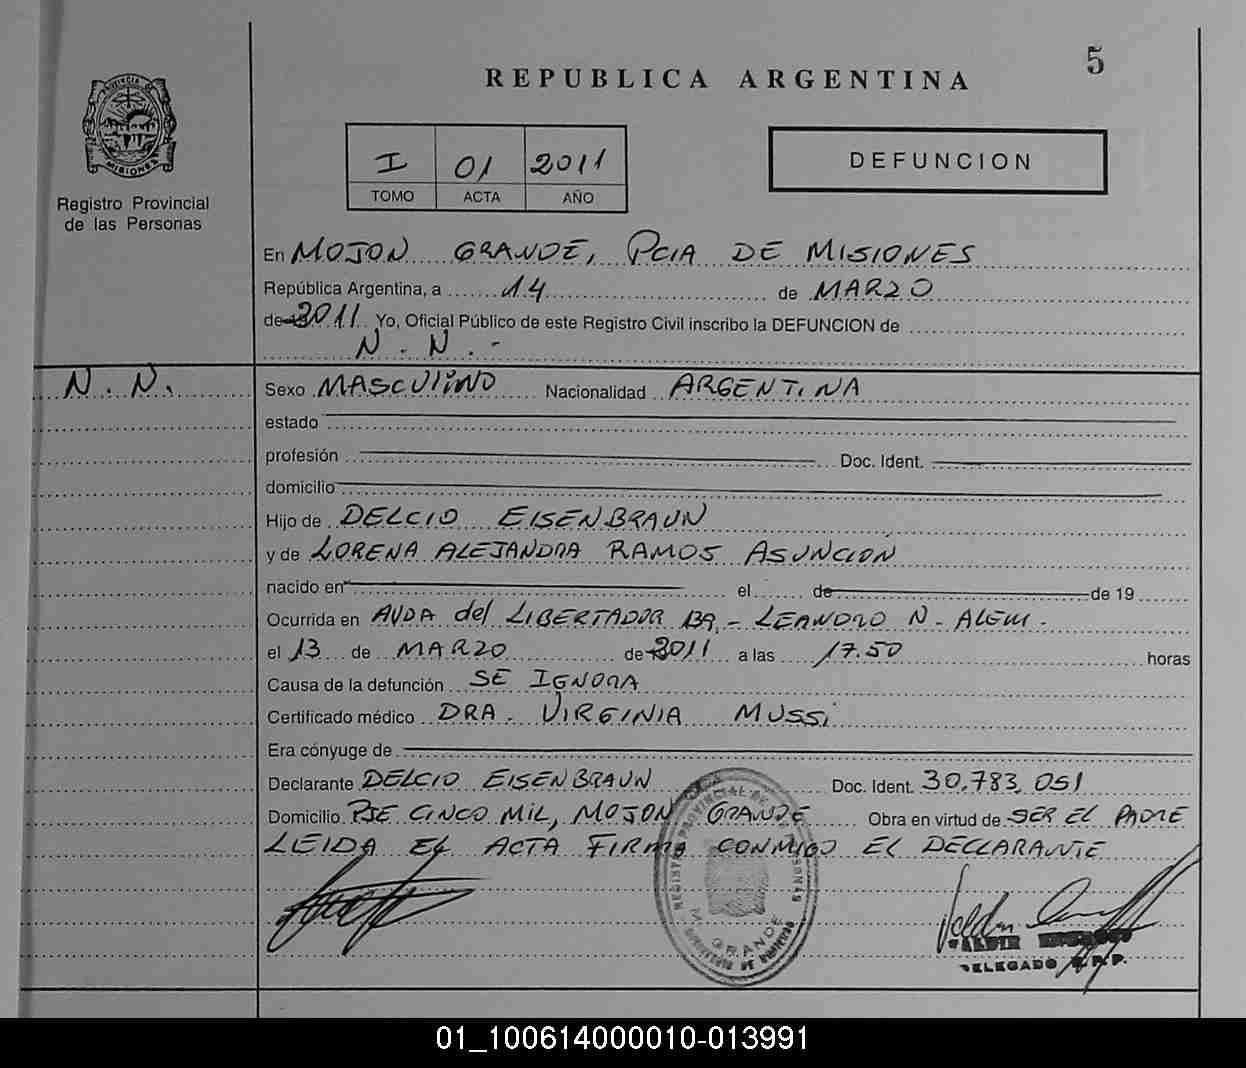 5
REPUBLICA ARGENTINA
PROVINCIA DE MISIONES
Registro Provincial
de las Personas
I 01 2011
TOMO ACTA AÑO
DEFUNCION
En MOJON GRANDE, PCIA DE MISIONES
República Argentina, a 14 de MARZO
de 2011 Yo, Oficial Público de este Registro Civil inscribo la DEFUNCION de
N. N. -
N. N.
Sexo MASCULINO Nacionalidad ARGENTINA
estado
profesión Doc. Ident.
domicilio
Hijo de DELCIO EISENBRAUN
y de LORENA ALEJANDRA RAMOS ASUNCION
nacido en el de de 19
Ocurrida en AVDA del LIBERTADOR 139 - LEANDRO N. ALEM -
el 13 de MARZO de 2011 a las 17.50 horas
Causa de la defunción SE IGNORA
Certificado médico DRA. VIRGINIA MUSSi
Era cónyuge de
Declarante DELCIO EISENBRAUN Doc. Ident. 30.783.051
Domicilio PJE CINCO MIL, MOJON GRANDE Obra en virtud de SER EL PADRE
LEIDA EL ACTA FIRMA CONMIGO EL DECLARANTE
GRANDE
DELEGADO R.P.P.
01_100614000010-013991